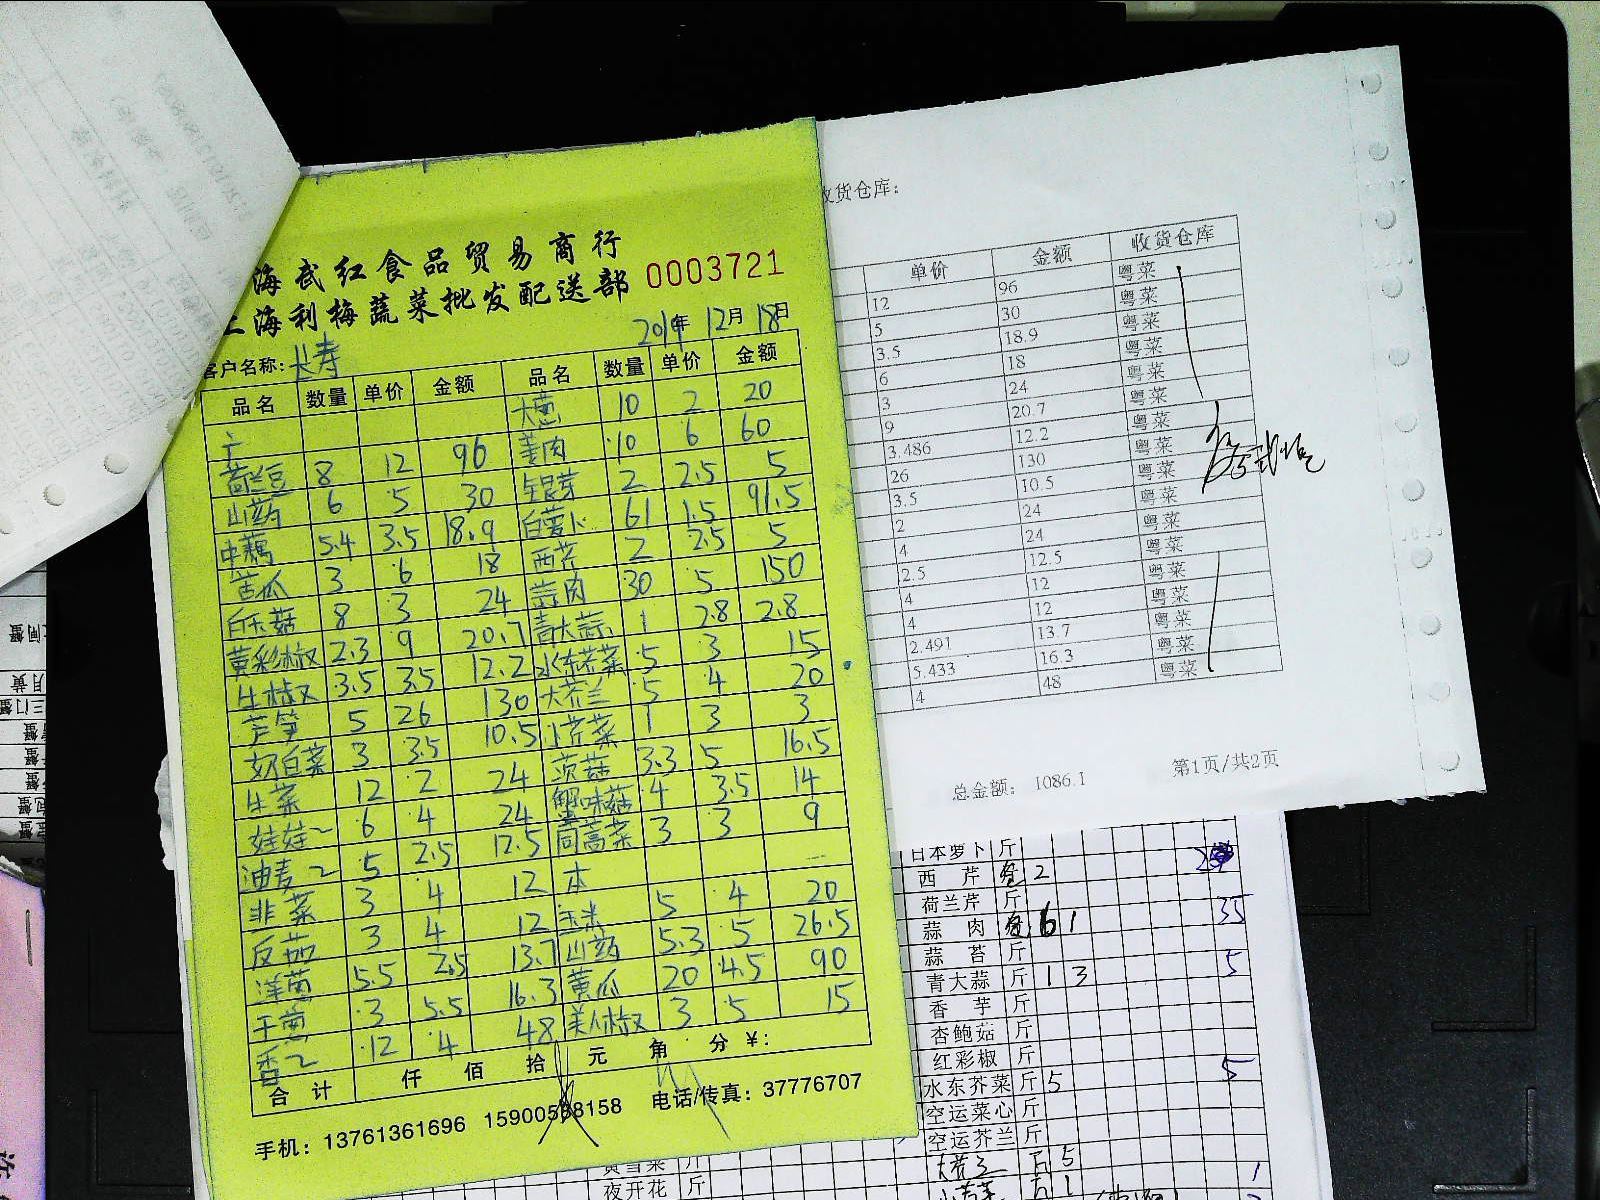 海武红食品贸易商行
上海利梅蔬菜批发配送部 0003721
2019年 12月 18日
客户名称: 长寿
品名 数量 单价 金额 品名 数量 单价 金额
大葱 10 2 20
姜肉 10 6 60
荷兰豆 8 12 96 银芽 2 2.5 5
山药 6 5 30 白萝卜 61 1.5 91.5
中藕 5.4 3.5 18.9 西芹 2 2.5 5
苦瓜 3 6 18 蒜肉 30 5 150
白玉菇 8 3 24 青大蒜 1 2.8 2.8
黄彩椒 2.3 9 20.7 水东芥菜 5 3 15
牛椒 3.5 3.5 12.2 大芥兰 5 4 20
芦笋 5 26 130 小芥菜 1 3 3
奶白菜 3 3.5 10.5 茨菇 3.3 5 16.5
生菜 12 2 24 蟹味菇 4 3.5 14
娃娃~ 6 4 24 茼蒿菜 3 3 9
油麦~ 5 2.5 12.5 本
韭菜 3 4 12 玉米 5 4 20
反茄 3 4 12 山药 5.3 5 26.5
洋葱 5.5 2.5 13.7 黄瓜 20 4.5 90
干葱 3 5.5 16.3 美人椒 3 5 15
香~ 12 4 48
合计 仟 佰 拾 元 角 分 ¥:
手机: 13761361696 15900558158 电话/传真: 37776707
收货仓库:
单价 金额 收货仓库
12 96 粤菜
5 30 粤菜
3.5 18.9 粤菜
6 18 粤菜
3 24 粤菜
9 20.7 粤菜
3.486 12.2 粤菜
26 130 粤菜
3.5 10.5 粤菜
2 24 粤菜
4 24 粤菜
2.5 12.5 粤菜
4 12 粤菜
4 12 粤菜
2.491 13.7 粤菜
5.433 16.3 粤菜
4 48 粤菜
总金额: 1086.1 第1页/共2页
日本萝卜 斤
西芹 2
荷兰芹 斤 35
蒜肉 61
蒜苔 斤 5
青大蒜 斤 1 3
香芋 斤
杏鲍菇 斤
红彩椒 斤 5
水东芥菜 斤 5
空运菜心 斤
空运芥兰 斤
大芥兰 斤 5
黄雪菜 斤 小芥菜 斤 1
夜开花 斤